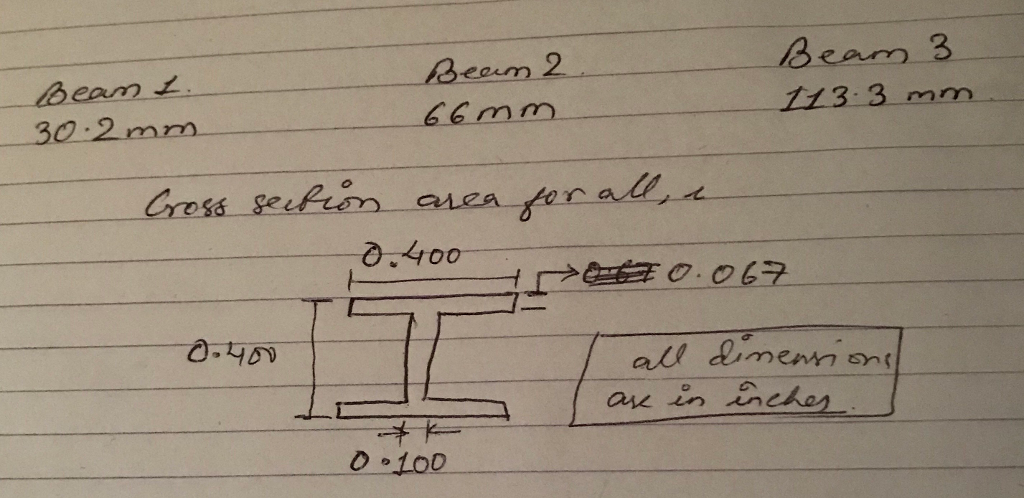 Beam 1. Beam 2. Beam 3
30.2mm 66mm 113.3 mm
Cross section area for all,
0.400
0.067
0.400
all dimensions
are in inches.
0.100